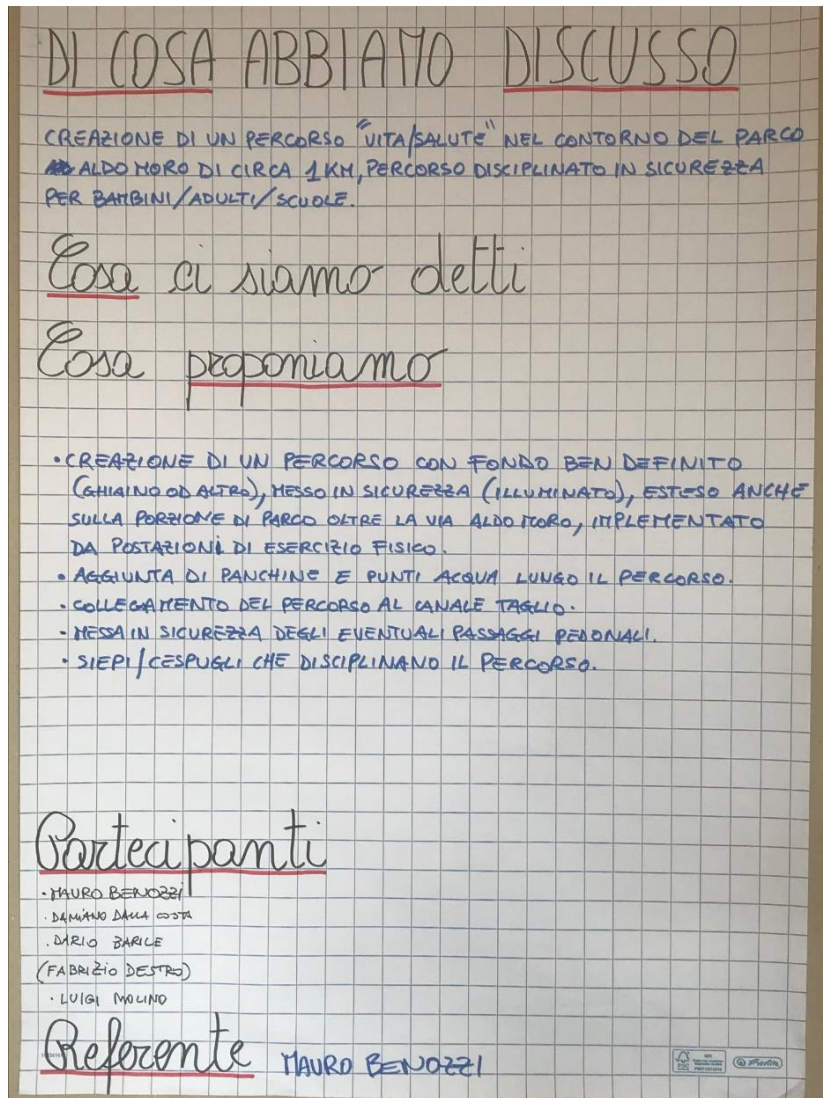 DI COSA ABBIAMO DISCUSSO
CREAZIONE DI UN PERCORSO "VITA/SALUTE" NEL CONTORNO DEL PARCO
ALDO MORO DI CIRCA 1 KM, PERCORSO DISCIPLINATO IN SICUREZZA
PER BAMBINI/ADULTI/SCUOLE.
Cosa ci siamo detti
Cosa proponiamo
• CREAZIONE DI UN PERCORSO CON FONDO BEN DEFINITO
(GHIAINO OD ALTRO), MESSO IN SICUREZZA (ILLUMINATO), ESTESO ANCHE
SULLA PORZIONE DI PARCO OLTRE LA VIA ALDO MORO, IMPLEMENTATO
DA POSTAZIONI DI ESERCIZIO FISICO.
• AGGIUNTA DI PANCHINE E PUNTI ACQUA LUNGO IL PERCORSO.
• COLLEGAMENTO DEL PERCORSO AL CANALE TAGLIO.
• MESSA IN SICUREZZA DEGLI EVENTUALI PASSAGGI PEDONALI.
• SIEPI/CESPUGLI CHE DISCIPLINANO IL PERCORSO.
Partecipanti
• MAURO BENOZZI
• DAMIANO DALLA COSTA
• DARIO BARILE
(FABRIZIO DESTRO)
• LUIGI MOLINO
Referente MAURO BENOZZI